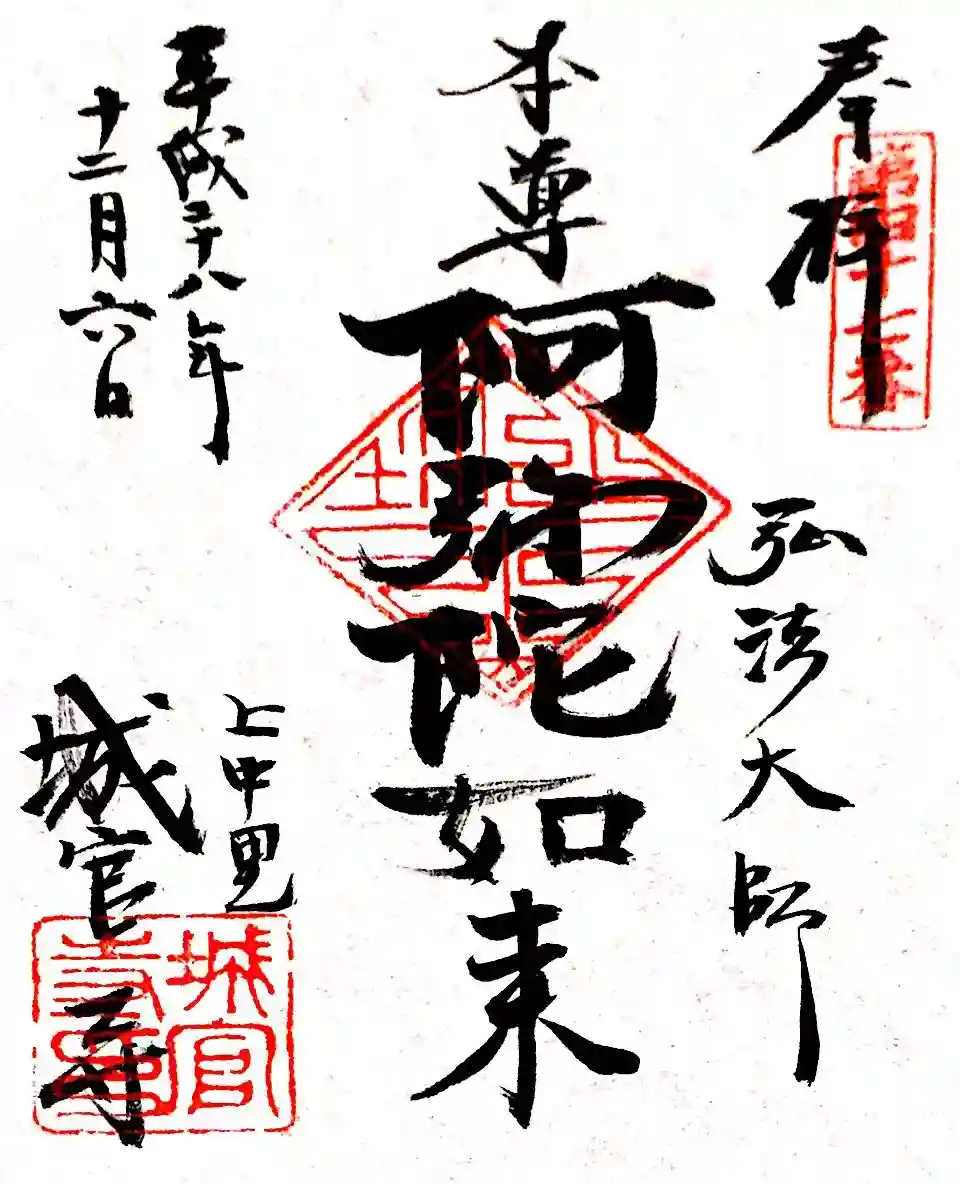 奉拝
第四十七番
弘法大師
本尊
阿弥陀如来
上中里
城官寺
平成二十八年
十二月六日
城官
寺印